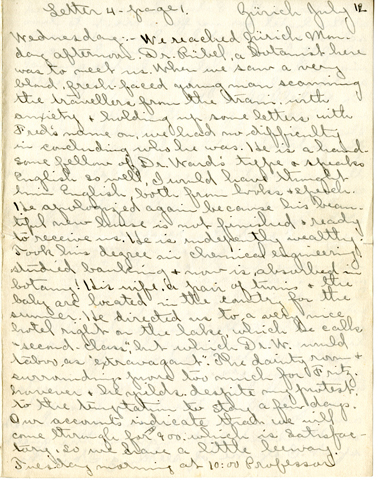 Letter 4 - page 1. Zürich July 12
Wednesday:- We reached Zürich Mon-
day afternoon. Dr. Rübel, a Botanist here
was to meet us. When we saw a very
blond, fresh-faced young man scanning
the travellers from the tram with
anxiety & holding up some letters with
Fred's name on, we had no difficulty
in concluding who he was. He is a hand-
some fellow of Dr. Ward's type & speaks
English so well, I would have thought
him English both from looks & speech.
He apologized again because his beau-
tiful new house is not finished & ready
to receive us. He is independently wealthy.
Took his degree in chemical engineering,
studied banking & now is absorbed in
botany! His wife, a pair of twins & the
baby are located in the country for the
summer. He directed us to a very nice
hotel right on the lake, which he calls
"second class", but which Dr. W. would
taboo as "extravagant". The dainty room &
surroundings prove too much for Fritz,
however & he yields, despite my protest,
to the temptation to stay a few days.
Our accounts indicate that we will
come through for 900. which is satisfac-
tory, so we have a little leeway.
Tuesday morning at 10:00 Professor